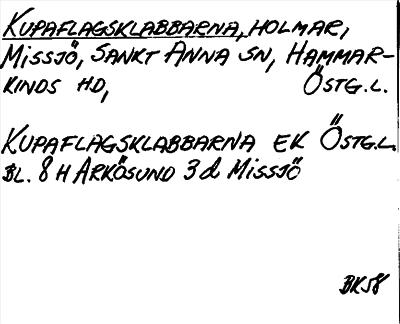 KUPAFLAGSKLABBARNA, HOLMAR,
MISSJÖ, SANKT ANNA SN, HAMMAR-
KINDS HD, ÖSTG.L.
KUPAFLAGSKLABBARNA EK ÖSTG.L.
BL. 8 H ARKÖSUND 3 d MISSJÖ
BK58